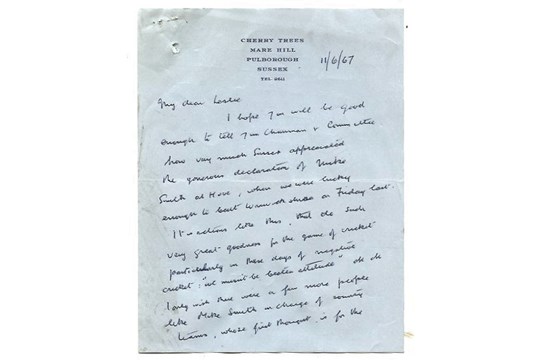 CHERRY TREES
MARE HILL
PULBOROUGH
SUSSEX
TEL
11/6/67
My dear Leslie
I hope you will be good
enough to tell your Chairman & Committee
how very much Sussex appreciated
the generous declaration of Mike
Smith at Hove, when we were lucky
enough to beat Warwickshire on Friday last.
It is actions like this, that do such
very great goodness for the game of cricket
particularly in these days of negative
cricket: "we mustn't be beaten attitude"
I only wish there were a few more people
like Mike Smith in charge of county
teams, whose first thought is for the